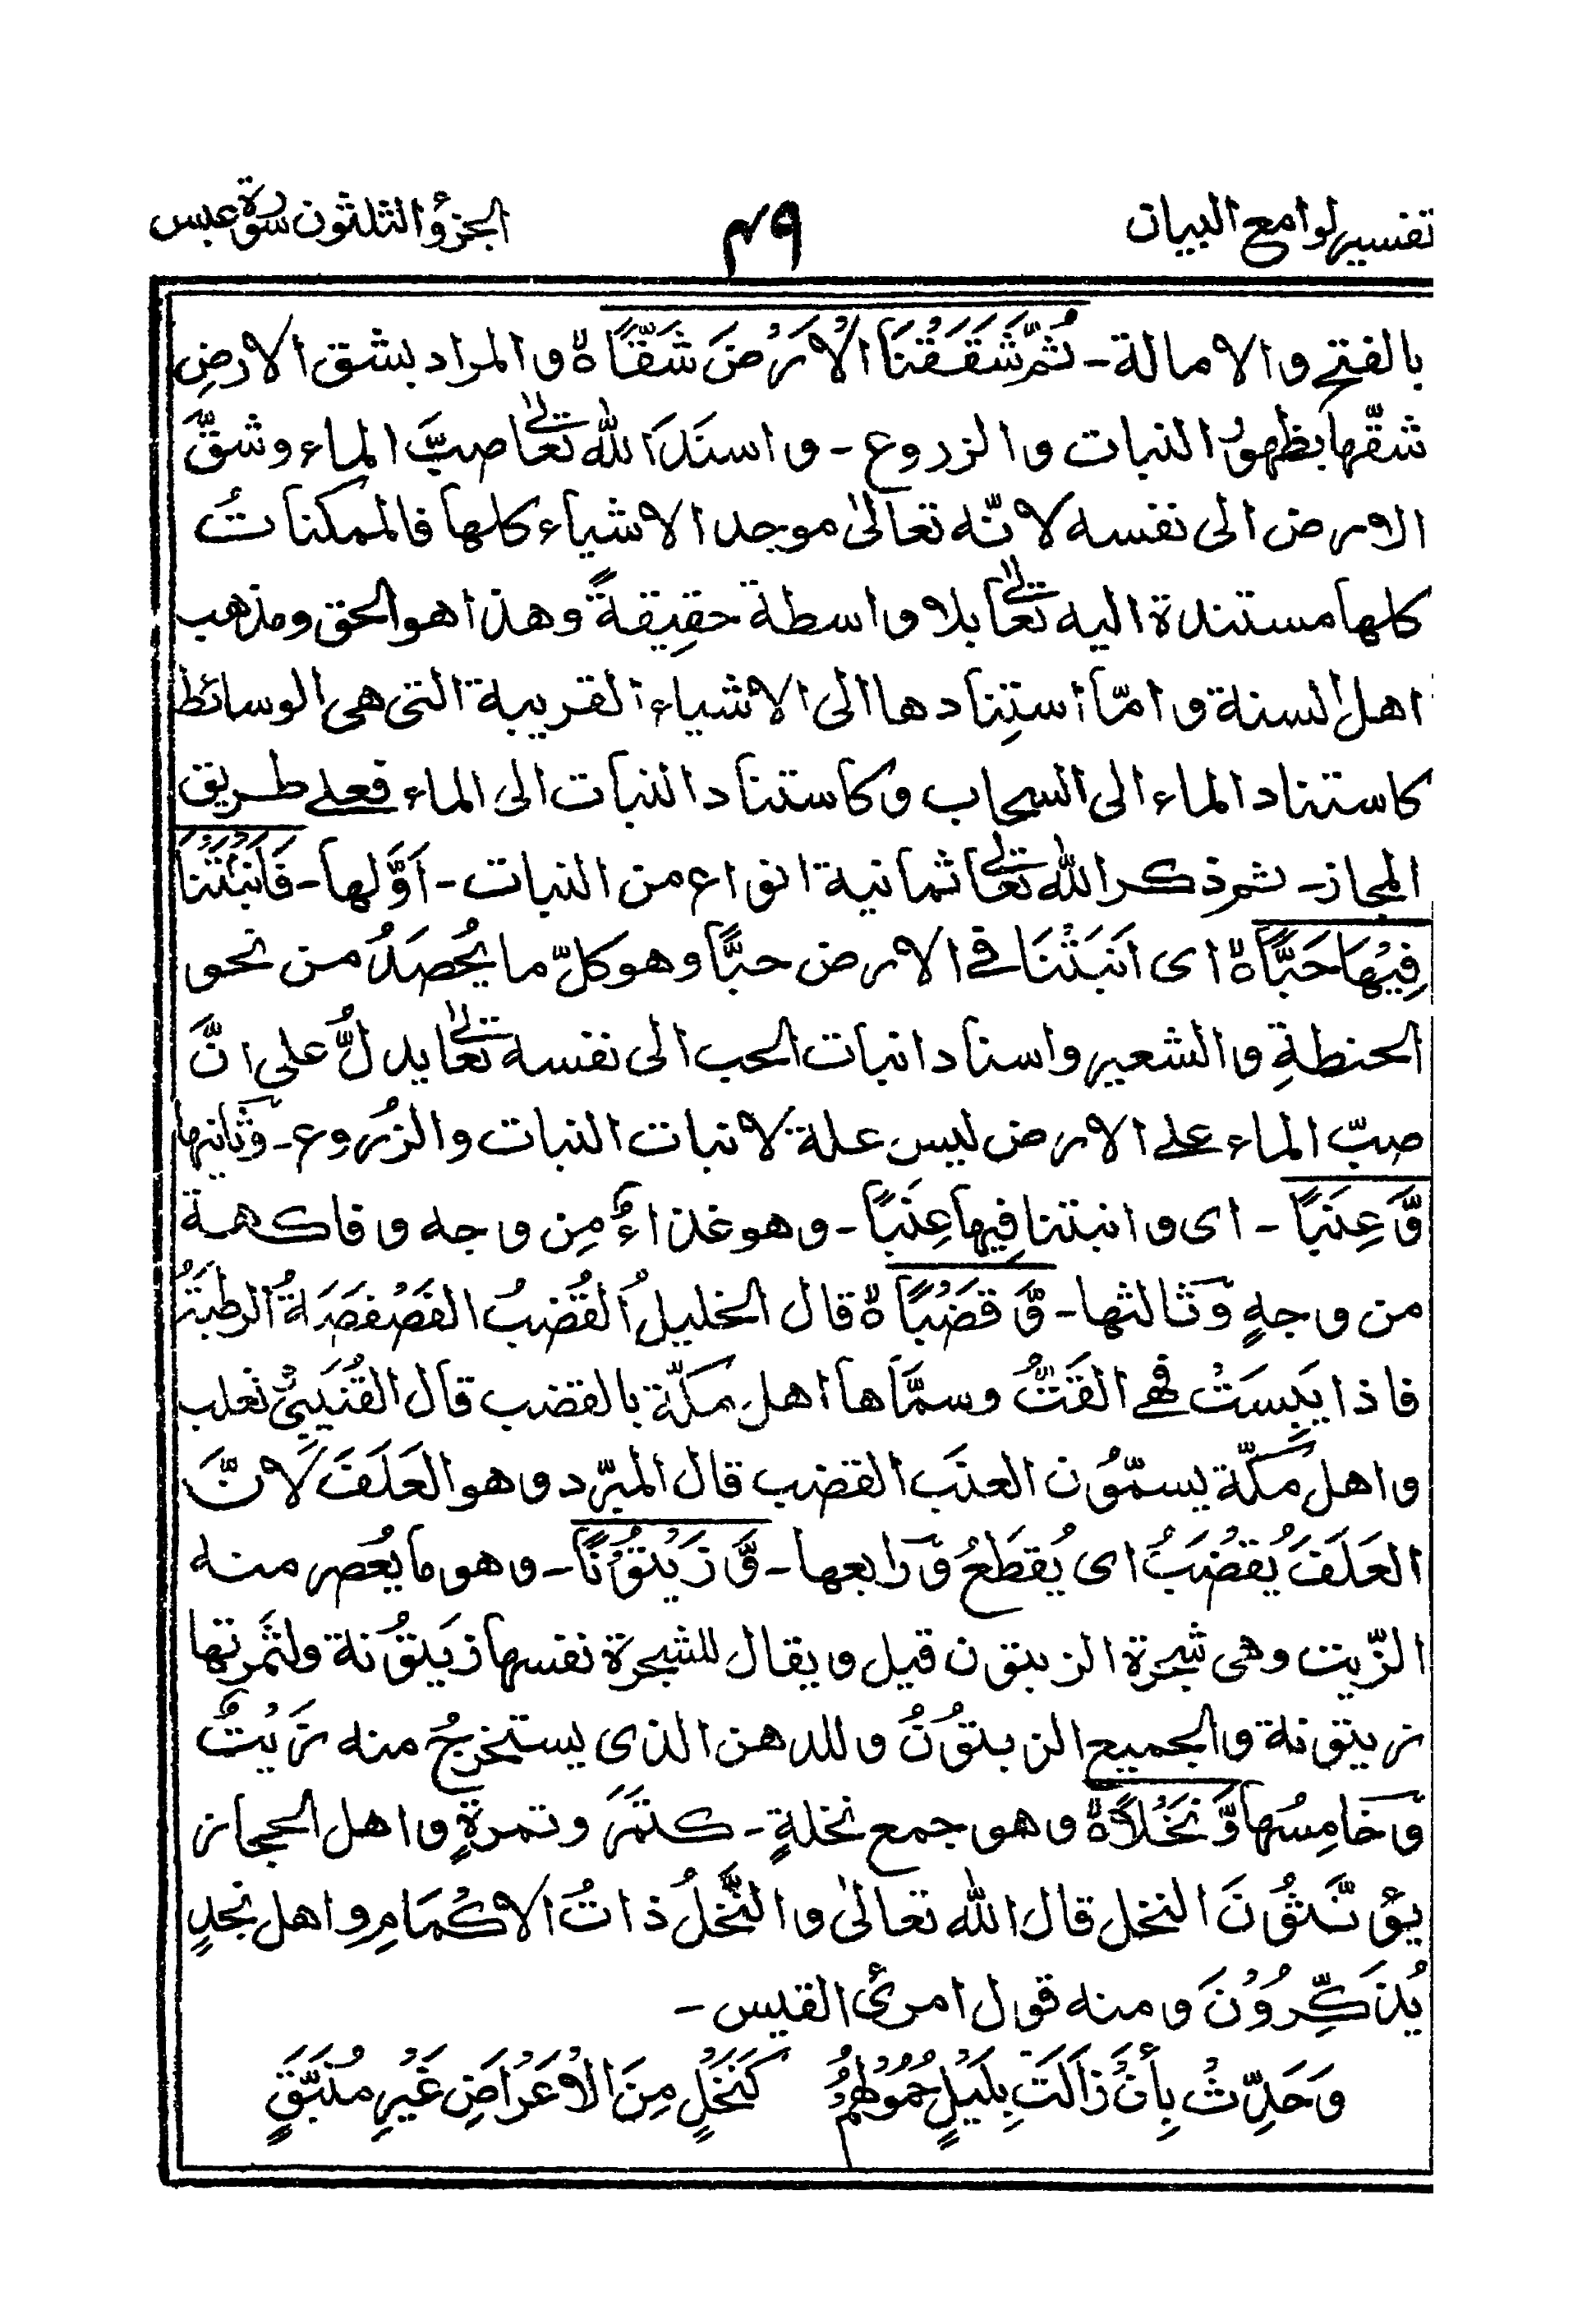 تفسير لوامع البيان ٤٩ الجزؤ الثلثون سورة عبس
بالفتح و الامالة - ثُمَّ شَقَقْنَا الْاَرْضَ شَقًّا ۵ و المراد بشق الارضِ
شقّها بظهورُ النبات و الزروع - و اسنَدَ الله تعالىٰ صبَّ الماء و شقَّ
الارض الى نفسه لانّه تعالىٰ موجد الاشياء كلها فالممكناتُ
كلها مستندة اليه تعالىٰ بلا واسطة حقِيقةً و هذا هو الحق و مذهب
اهل السنة و امّا استِنادها الى الاشياء القريبة التى هى الوسائط
كاستناد الماء الى السحاب و كاستناد النبات الى الماء فعلے طريق
المجاز - ثم ذكر الله تعالىٰ ثمانية انواع من النبات - اَوَّلها - فَاَنْبَتْنَا
فِيْهَا حَبًّا ۵ اى اَنبَتْنَا فے الارض حبًّا و هو كلّ ما يُحصَدُ من نحو
الحنطةِ و الشعير و اسناد انبات الحب الى نفسه تعالىٰ يدلُّ على انَّ
صبّ الماء علے الارض ليس علة لانبات النبات و الزرُوع - و ثانيها
وَّ عِنَبًا - اى و انبتنا فِيها عِنَبًا - و هو غذاءٌ مِن وجه و فاكهة
من وجهٍ و ثالثها - وَّ قَضْبًا ۵ قال الخليلُ القُضبُ الفَصْفَصَةُ الرطبَةُ
فاذا يَبِسَتْ فهے القَتُّ و سمَّاها اهل مكّة بالقضب قال القُتَيبىُّ ثعلب
و اهل مكّة يسمّوُن العنَب القضب قال المبرّد و هو العَلَفَ لَانَّ
العَلَفَ يُقضَبُ اى يُقطَعُ و رابعها - وَّ زَيْتُوْنًا - و هو ما يعُصر منه
الزّيت و هى شجرة الزيتون قيل و يقال للشجرة نفسها زيَتوُنة و لثمَرتها
زيتونة و الجميع الزيتوُنُ و للدهن الذى يستخرجُ منه زَيْتٌ
و خامِسُها وَّ نَخْلًا ۵ و هو جمع نخلةٍ - كتمَرَ و تمرةٍ و اهل الحجاز
يؤنَّثوُنَ النخل قال الله تعالىٰ و النَّخلُ ذاتُ الاكُمَامِ و اهل نجدٍ
يُذَكِّرُوْنَ و منه قول امرئ القيس -
وَ حَدِّثْ بِأَنْ زَالَتَ بِلَيْلٍ حُمُوْلُهُمْ كَنَخْلٍ مِنَ الْاَعْرَاضِ غَيْرِ مُنَبَّقٍ